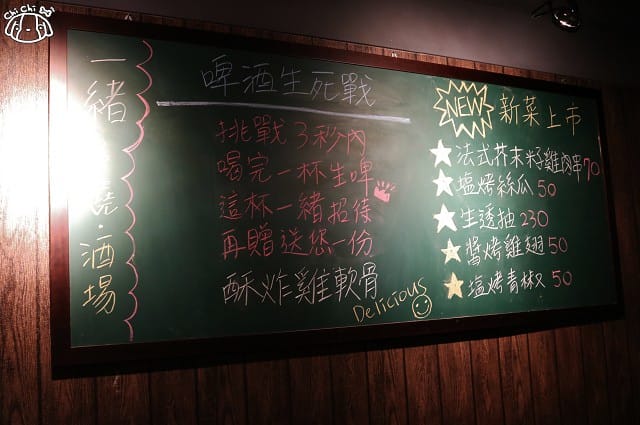 Chi Chi Dol
一緒
燒・酒場
啤酒生死戰
挑戰3秒內
喝完一杯生啤
這杯一緒招待
再贈送您一份
酥炸雞軟骨
Delicious
NEW 新菜上市
法式芥末籽雞肉串70
塩烤絲瓜50
生透抽230
醬烤雞翅50
塩烤青椒
50